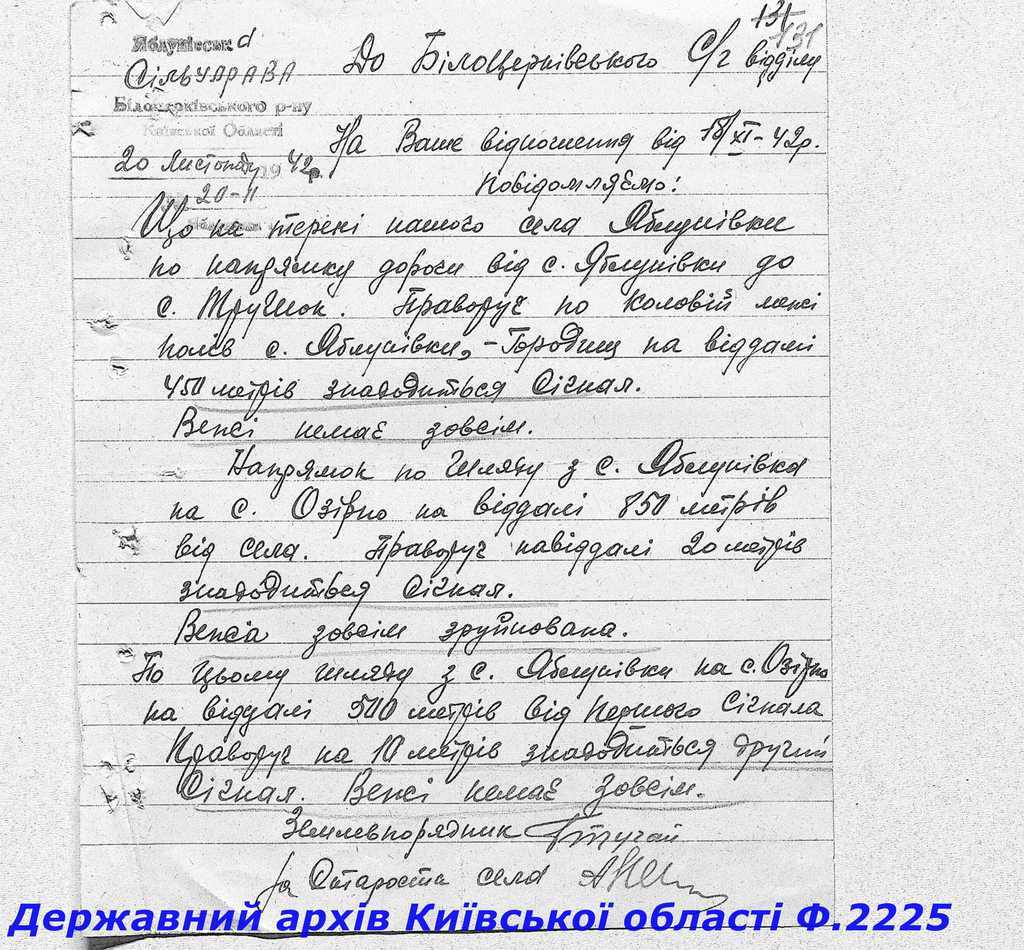 131
131
Яблунівськ а
СІЛЬУПРАВА
Білоцерківського р-ну
Київської Області
20 Листопаду 1942р.
20-11
До Білоцерківського С/г відділу
На Ваше відношення від 18/XI-42р.
повідомляємо:
Що на терені нашого села Яблунівки
по напрямку дороги від с. Яблунівки до
с. Трушок. Праворуч по коловій межі
полів с. Яблунівки, - Городищ на віддалі
450 метрів знаходиться Сігнал.
Венсі немає зовсім.
Напрямок по шляху з с. Яблунівка
на с. Озірно на віддалі 850 метрів
від села. Праворуч навіддалі 20 метрів
знаходиться Сігнал.
Венсіа зовсім зруйнована.
По цьому шляху з с. Яблунівки на с. Озірно
на віддалі 500 метрів від першого Сігнала
Праворуч на 10 метрів знаходиться другий
Сігнал. Венсі немає зовсім.
Землевпорядник
За Старости села
Державний архів Київської області Ф.2225